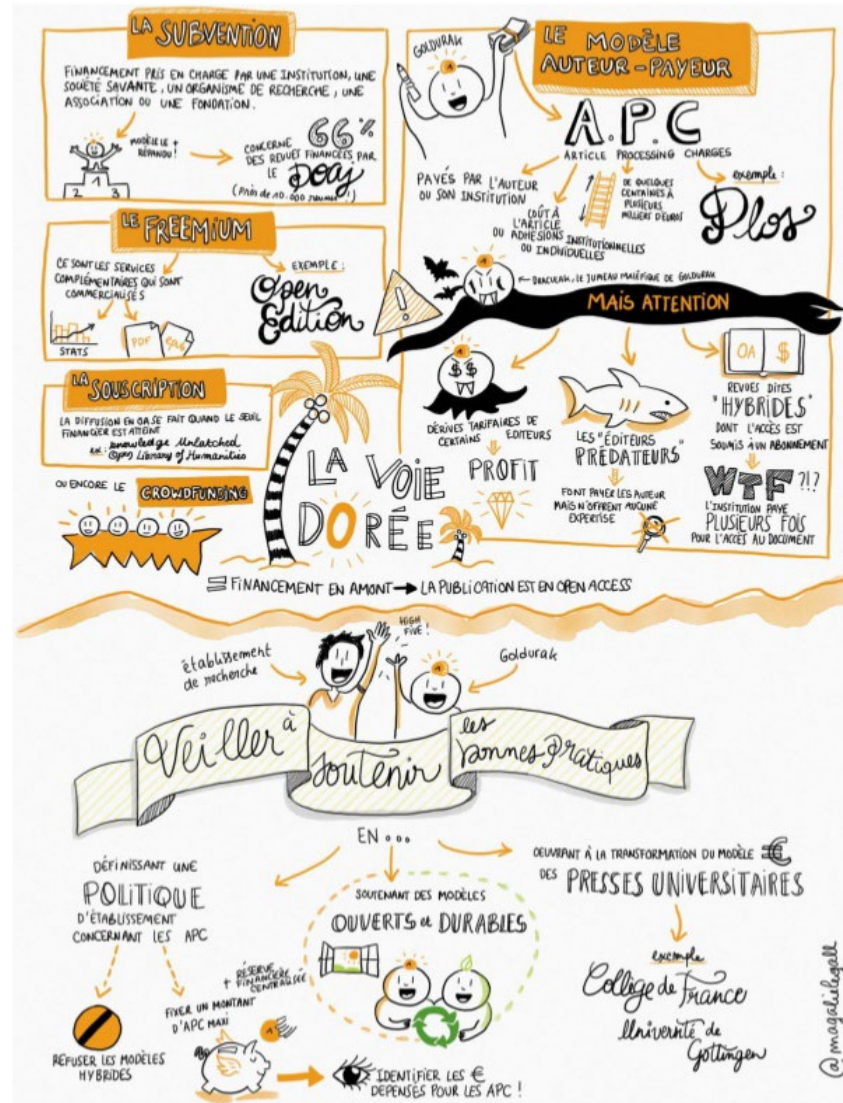 LA SUBVENTION
FINANCEMENT PRIS EN CHARGE PAR UNE INSTITUTION, UNE
SOCIÉTÉ SAVANTE, UN ORGANISME DE RECHERCHE, UNE
ASSOCIATION OU UNE FONDATION.
MODÈLE LE +
RÉPANDU !
2 1 3
CONCERNE 66%
DES REVUES FINANCÉES PAR
LE DOAJ
(Près de 10.000 revues !)
LE FREEMIUM
CE SONT LES SERVICES
COMPLÉMENTAIRES QUI SONT
COMMERCIALISÉS
STATS
PDF
epub
EXEMPLE :
Open
Edition
LA SOUSCRIPTION
LA DIFFUSION EN OA SE FAIT QUAND LE SEUIL
FINANCIER EST ATTEINT
ex : Knowledge Unlatched
Open Library of Humanities
OU ENCORE LE CROWDFUNDING
GOLDURAK
LE MODÈLE
AUTEUR-PAYEUR
A.P.C
ARTICLE PROCESSING CHARGES
PAYÉS PAR L'AUTEUR
OU SON INSTITUTION
COÛT À
L'ARTICLE
OU ADHÉSIONS INSTITUTIONNELLES
OU INDIVIDUELLES
DE QUELQUES
CENTAINES À
PLUSIEURS
MILLIERS D'EUROS
exemple :
Plos
DRACULAK, LE JUMEAU MALÉFIQUE DE GOLDURAK
!
MAIS ATTENTION
$ $
DÉRIVES TARIFAIRES DE
CERTAINS EDITEURS
PROFIT
LES "ÉDITEURS
PRÉDATEURS"
FONT PAYER LES AUTEUR
MAIS N'OFFRENT AUCUNE
EXPERTISE
OA $
REVUES DITES
"HYBRIDES"
DONT L'ACCÈS EST
SOUMIS À UN ABONNEMENT
WTF ?!?
L'INSTITUTION PAYE
PLUSIEURS FOIS
POUR L'ACCÈS AU DOCUMENT
LA VOIE
DORÉE
= FINANCEMENT EN AMONT → LA PUBLICATION EST EN OPEN ACCESS
établissement
de recherche
HIGH
FIVE !
Goldurak
Veiller à soutenir les bonnes pratiques
EN...
DÉFINISSANT UNE
POLITIQUE
D'ÉTABLISSEMENT
CONCERNANT LES APC
REFUSER LES MODÈLES
HYBRIDES
FIXER UN MONTANT
D'APC MAXI
+ RÉSERVE
FINANCIÈRE
CENTRALISÉE
IDENTIFIER LES €
DÉPENSÉS POUR LES APC !
SOUTENANT DES MODÈLES
OUVERTS et DURABLES
OEUVRANT À LA TRANSFORMATION DU MODÈLE €
DES PRESSES UNIVERSITAIRES
exemple
Collège de France
Université de
Göttingen
@magalilegall